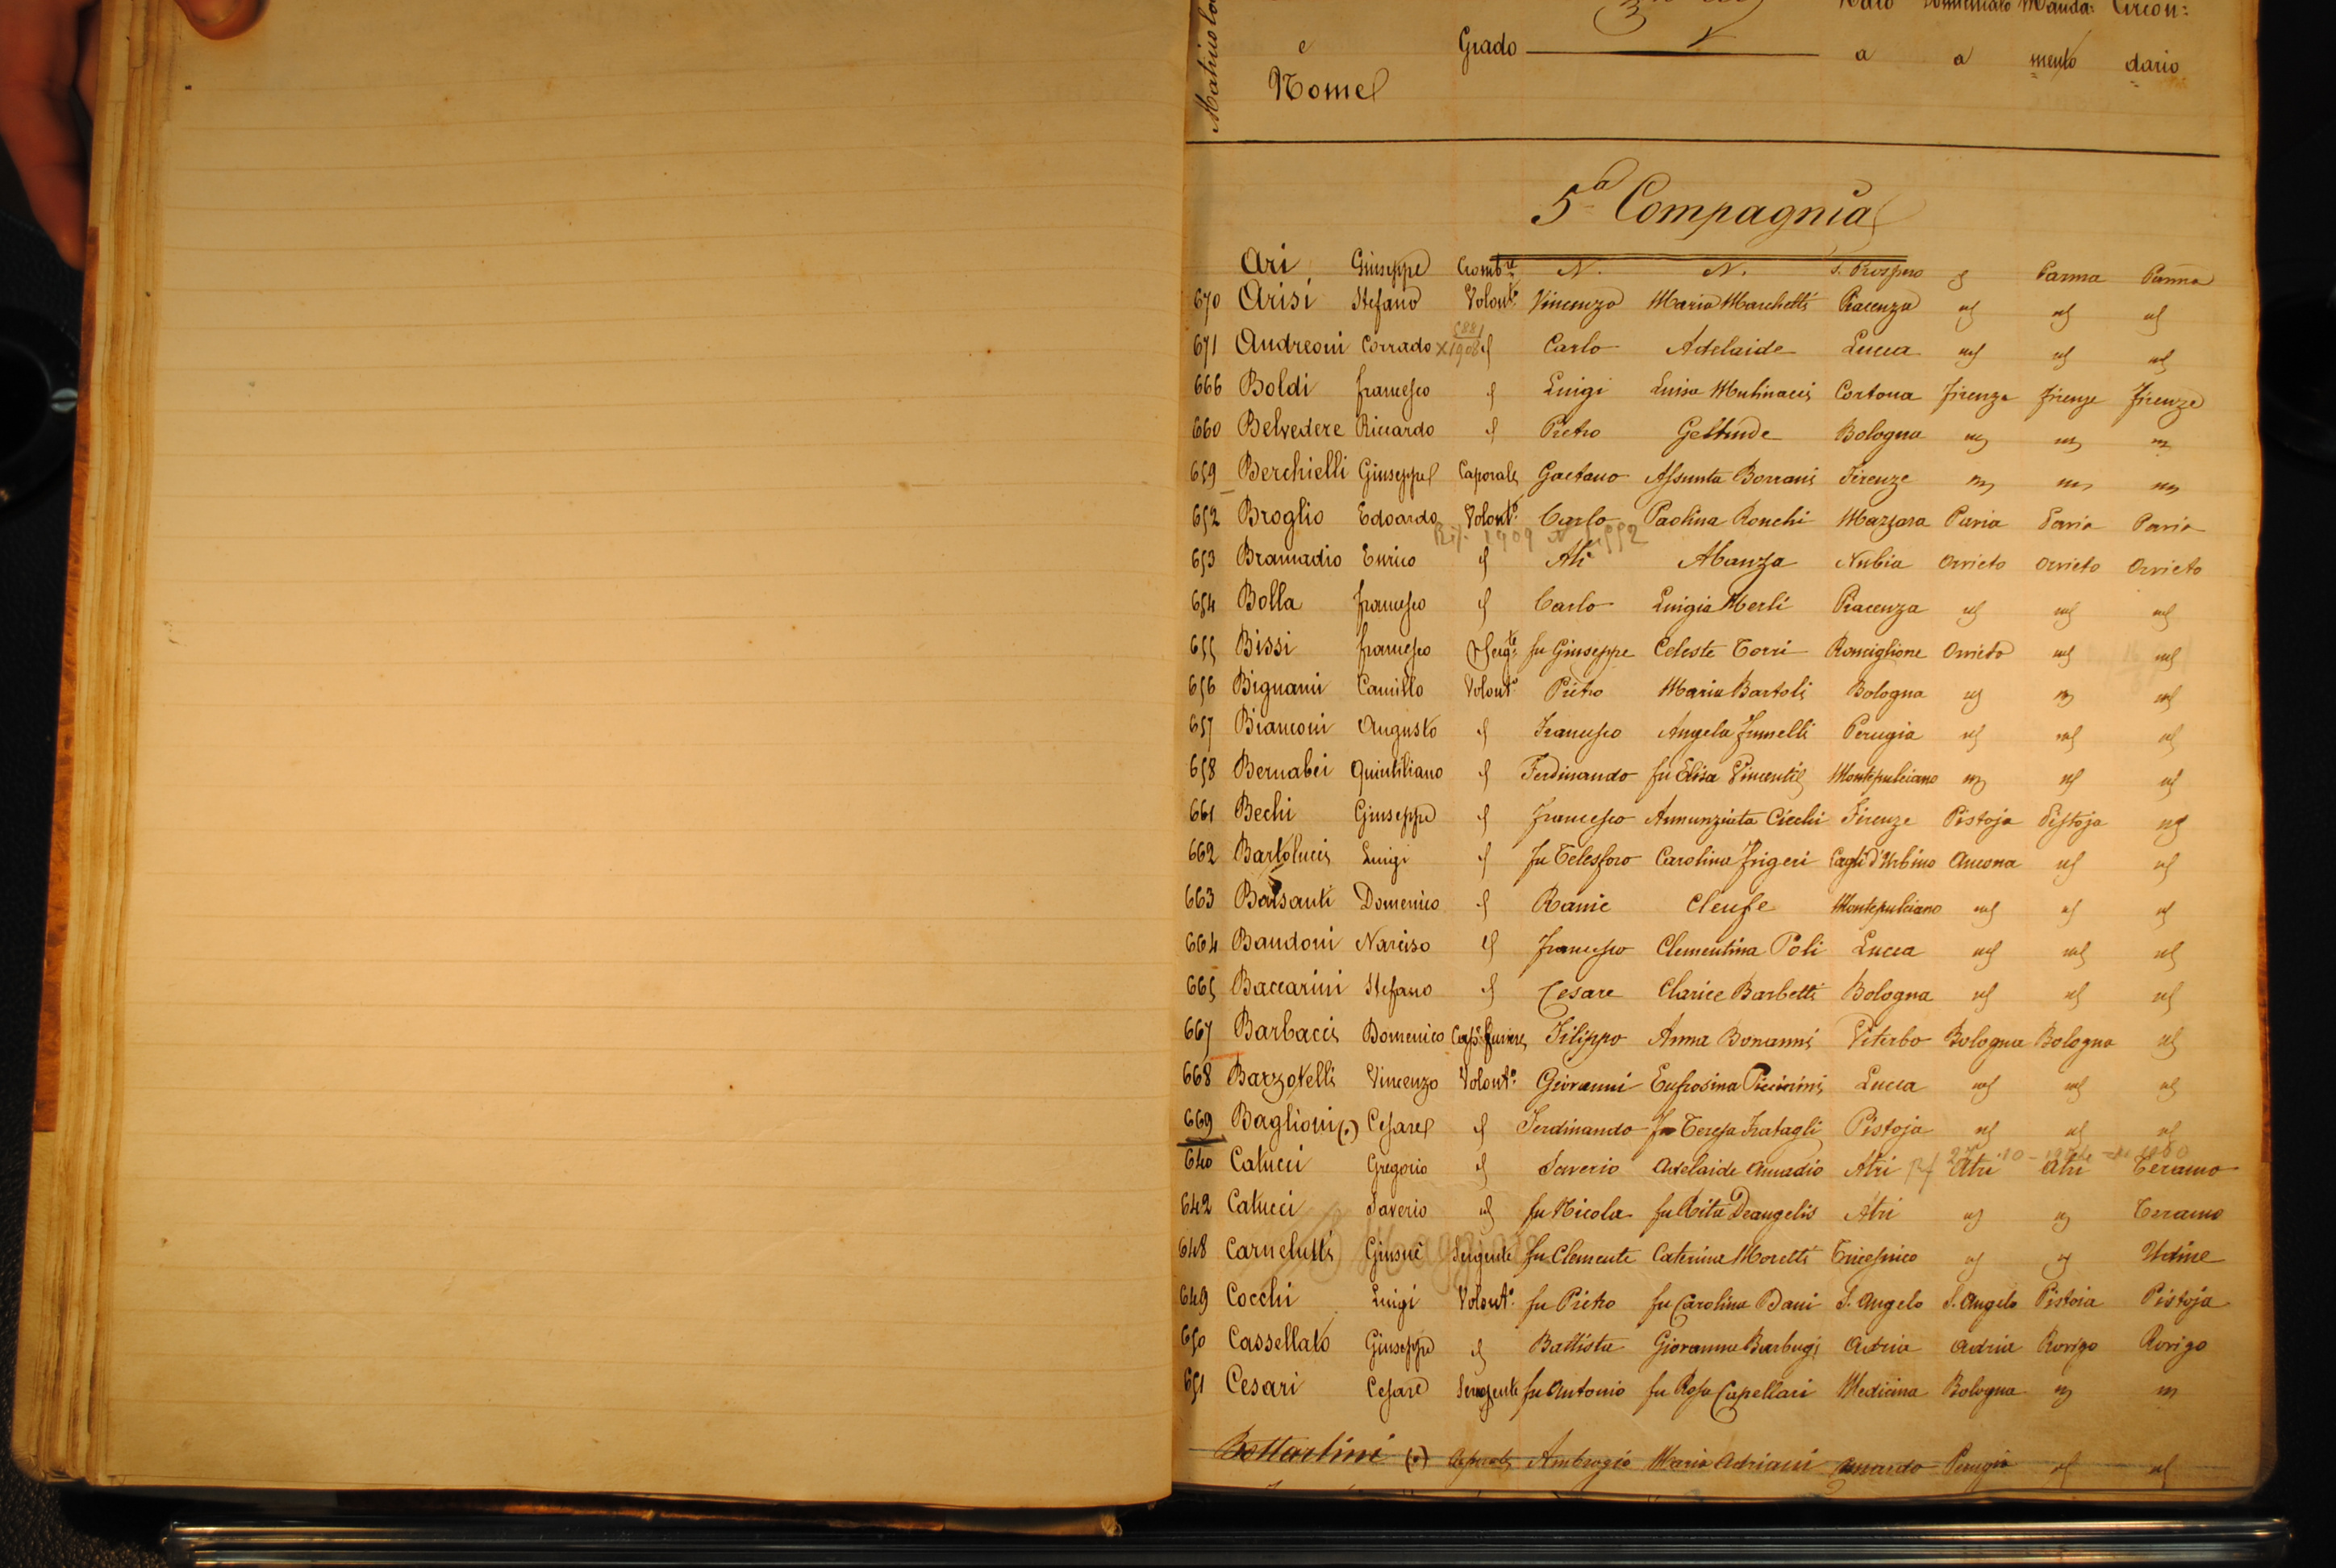 Matricola
e
Nome
Grado
Nato a
Domiciliato a
Manda=mento
Circon=dario
5a Compagnia
Ari Giuseppe Tromb.re N. N. S. Prospero " Parma Parma
670 Arisi Stefano Volont.o Vincenzo Maria Marchetti Piacenza " " "
671 Andreoni Corrado X 1908 " Carlo Adelaide Lucca " " "
666 Boldi Francesco " Luigi Luisa Mulinacci Cortona Firenze Firenze Firenze
660 Belvedere Riccardo " Pietro Geltrude Bologna " " "
659 Berchielli Giuseppe Caporale Gaetano Assunta Borrani Firenze " " "
652 Broglio Edoardo Volont.o Carlo Paolina Ronchi Mazzara Pavia Pavia Pavia
1909
653 Bramadio Enrico " Ali Abanza Nubia Orvieto Orvieto Orvieto
654 Bolla Francesco " Carlo Luigia Merli Piacenza " " "
655 Bissi Francesco Serg.te fu Giuseppe Celeste Torri Ronciglione Orvieto " "
656 Bignami Camillo Volont.o Pietro Maria Bartoli Bologna " " "
657 Bianconi Augusto " Francesco Angela Perugia " " "
658 Bernabei Quintiliano " Ferdinando fu Elisa Vincenti Montepulciano " " "
661 Bechi Giuseppe " Francesco Annunziata Cicchi Firenze Pistoja Pistoja "
662 Bartolucci Luigi " fu Telesforo Carolina Frigeri Cagli d'Urbino Ancona " "
663 Barsanti Domenico " Cleufe Montepulciano " " "
664 Bandoni Narciso " Francesco Clementina Poli Lucca " " "
665 Baccarini Stefano " Cesare Clarice Barbetti Bologna " " "
667 Barbacci Domenico Cap.e furiere Filippo Anna Bonanni Viterbo Bologna Bologna "
668 Barzotelli Vincenzo Volont.o Giovanni Eufrosina Piccinini Lucca " " "
669 Baglioni (.) Cesare " Ferdinando fu Teresa Fratagli Pistoja " " "
640 Catucci Gregorio " Saverio Adelaide Amadio Atri Atri Atri Teramo
642 Catucci Saverio " fu Nicola fu Rita Deangelis Atri " " Teramo
648 Carnelutti Giosuè Sergente fu Clemente Caterina Moretti Tricesimo " " Udine
649 Cocchi Luigi Volont.o fu Pietro fu Carolina Dani S. Angelo S. Angelo Pistoia Pistoja
650 Cassellato Giuseppe " Battista Giovanna Barbugi Adria Adria Rovigo Rovigo
651 Cesari Cesare Sergente fu Antonio fu Rosa Capellari Medicina Bologna " "
Bottartini (.) Caporale Ambrogio Maria Adriani Perugia " "